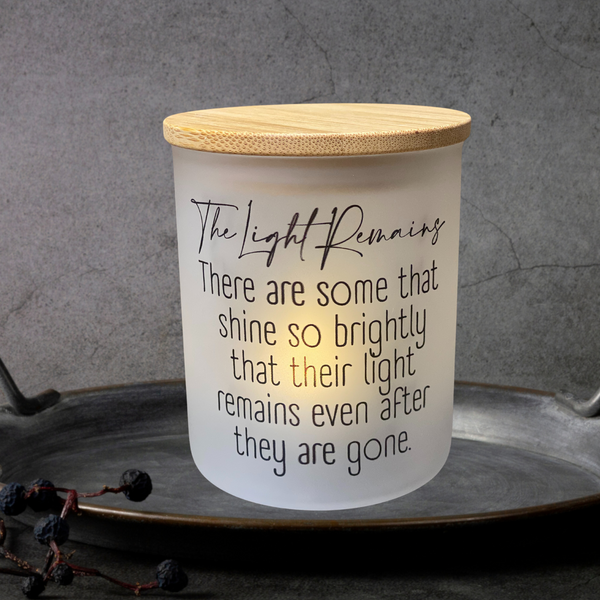 The Light Remains
There are some that
shine so brightly
that their light
remains even after
they are gone.